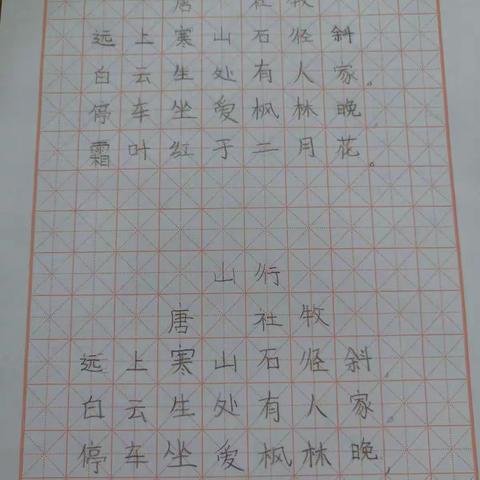 唐 社牧
远上寒山石径斜
白云生处有人家。
停车坐爱枫林晚,
霜叶红于二月花。
山行
唐 社牧
远上寒山石径斜,
白云生处有人家。
停车坐爱枫林晚,